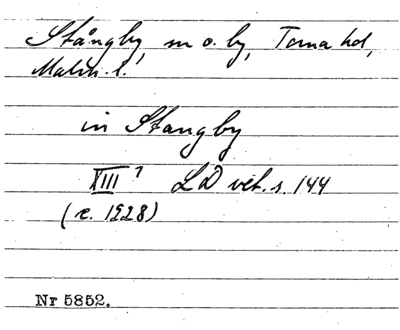 Stångby, sn o. by, Torna hd,
Malm. l.
in Stangby
XIII¹ LD vit. s. 144
(c. 1928)
Nr 5852.